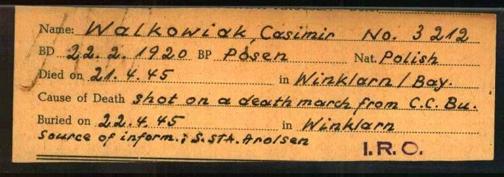 Name: Walkowiak, Casimir No. 3212
BD 22.2.1920 BP Posen Nat. Polish
Died on 21.4.45 in Winklarn/Bay.
Cause of Death shot on a death march from C.C. Bu.
Buried on 22.4.45 in Winklarn
Source of inform.: S.STA. Arolsen
I.R.O.